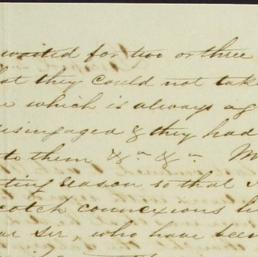 waited for two or three
that they could not take
which is always ag
disengaged & they had
to them &c &c. M
ting season so that
Scotch connexions h
Sir, who have seen